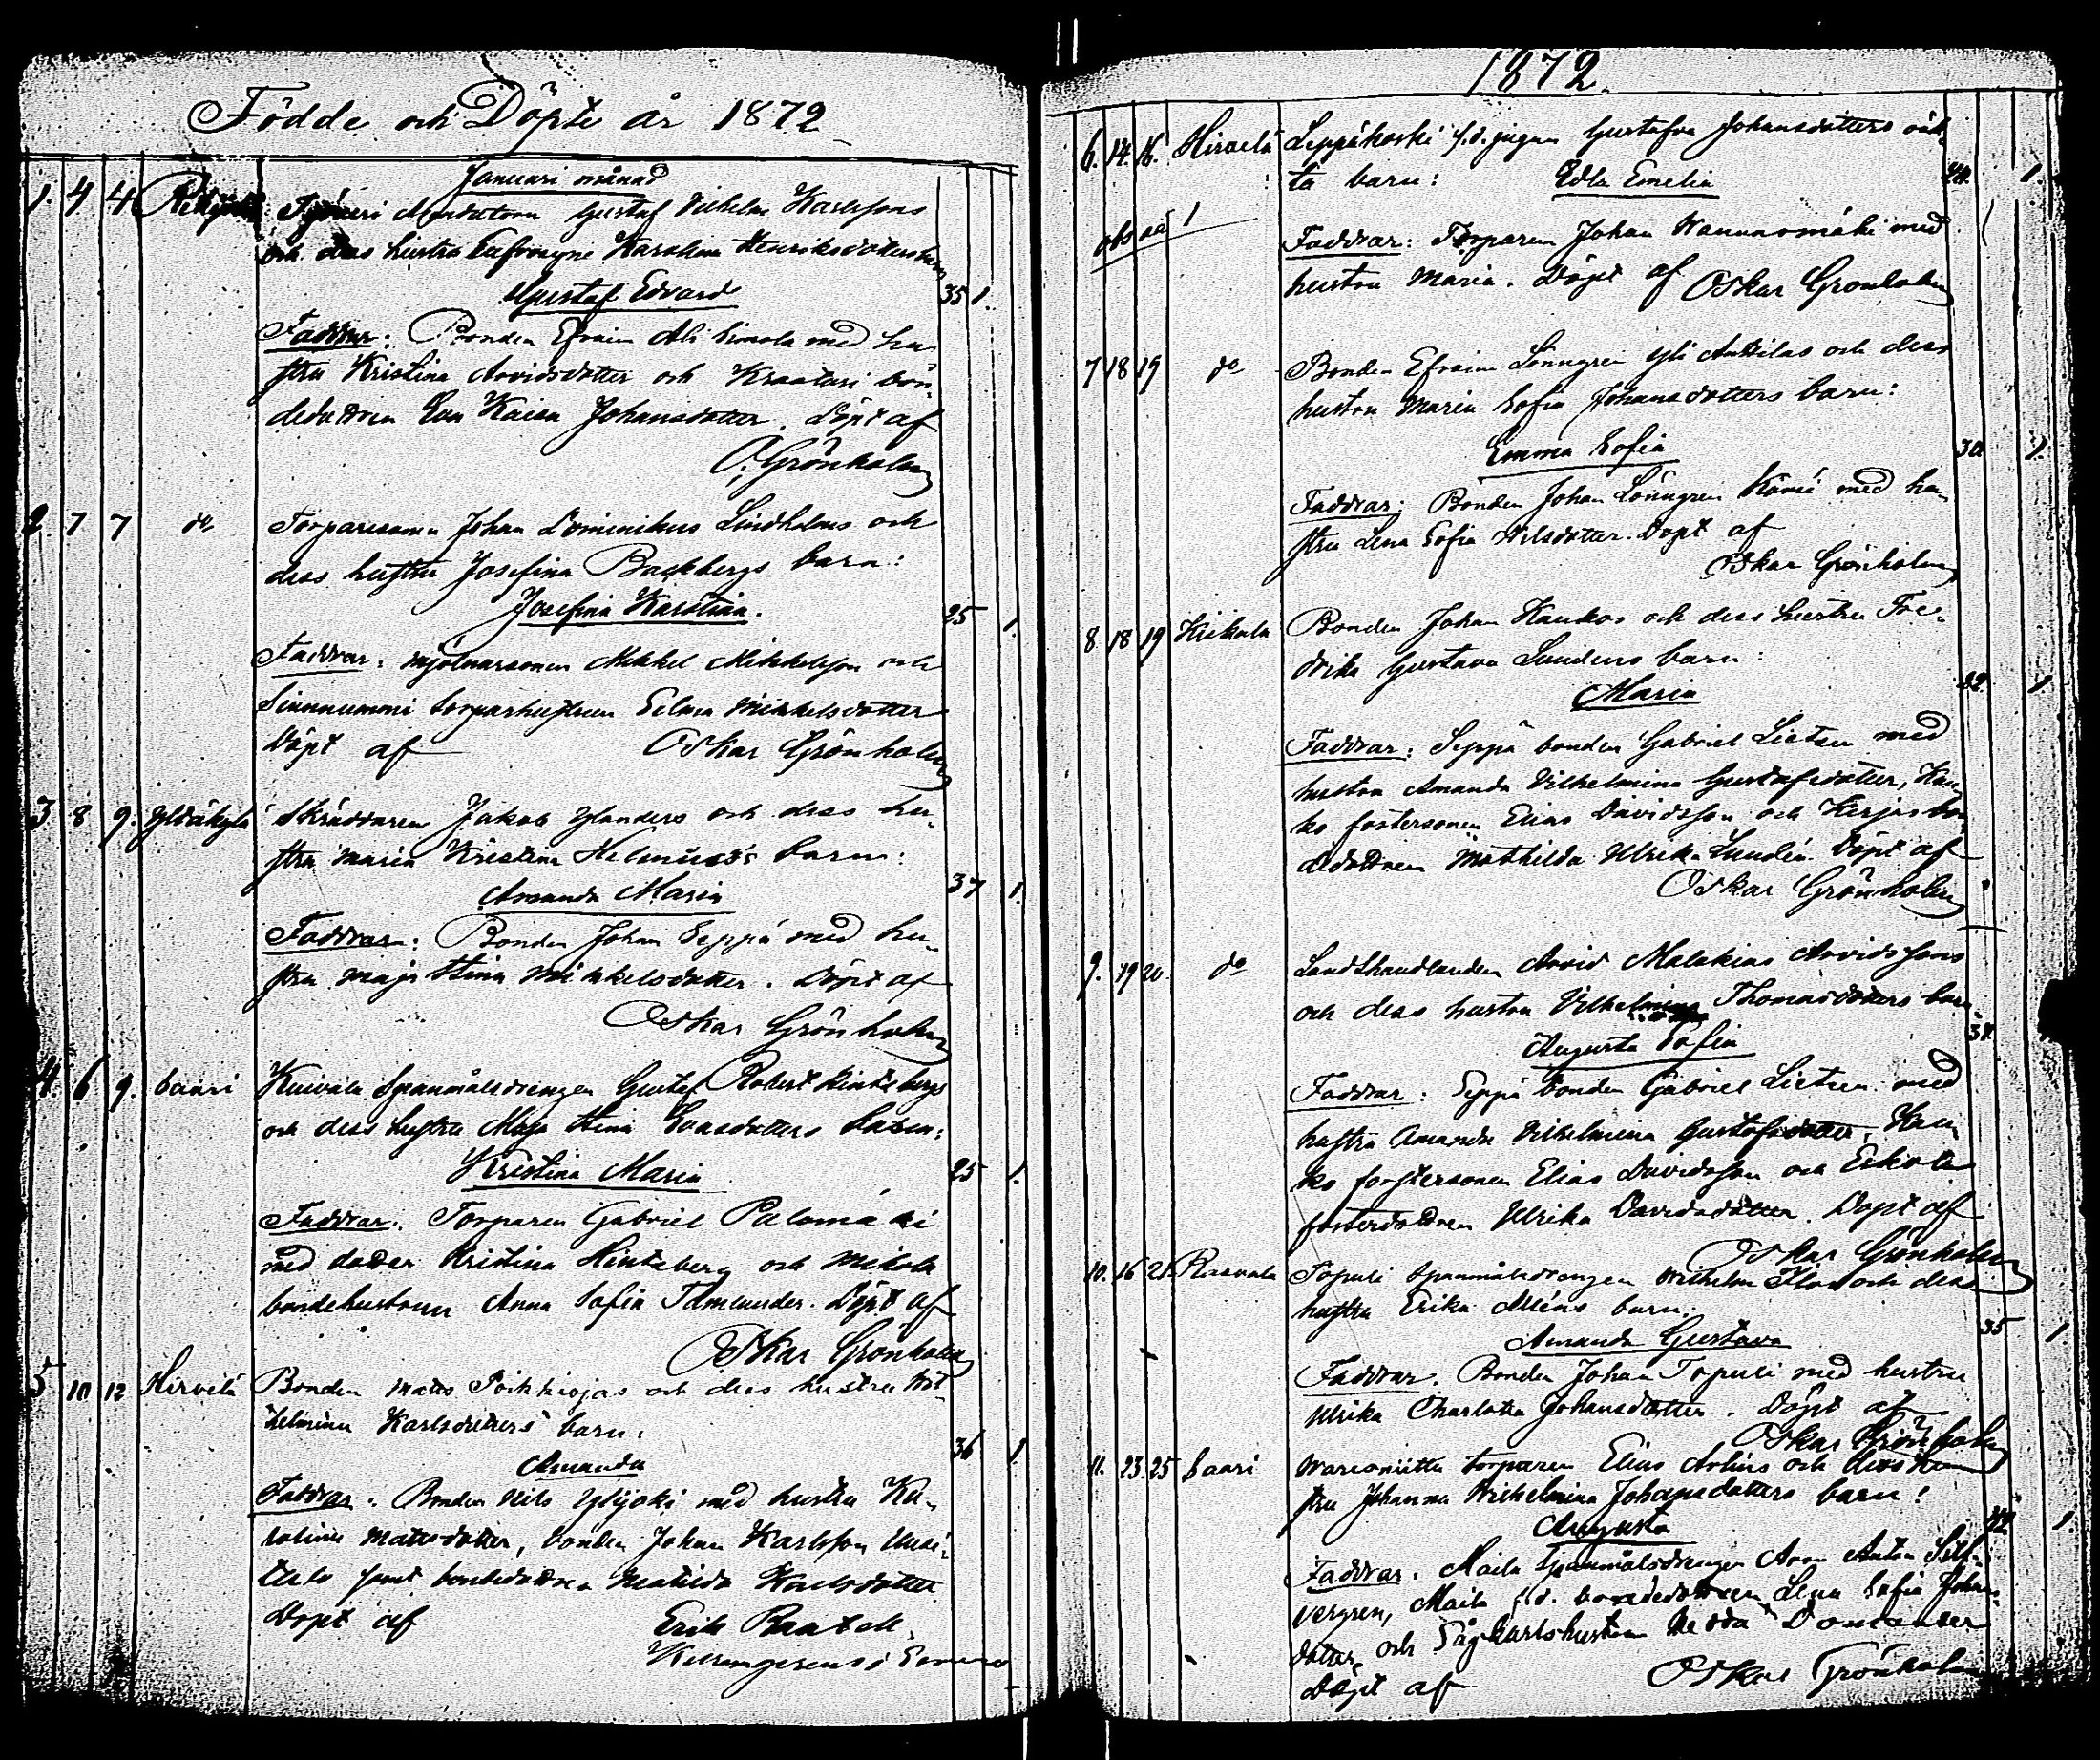 Födde och Döpte år 1872
Januari månad
1. 4 4
Gustaf Vilhelm Karlssons
och dess hustru Eufrosyne Karolina Henriksdotters barn
Gustaf Edvard
35 1.
Faddrar: Bonden Efraim Ali Simola med hu-
stru Kristina Arvidsdotter och Kraatari bon-
dedottren Eva Kaisa Johansdotter. Döpt af
O. Grönholm
2. 7 7 do Torparesonen Johan Dominikus Lindholms och
dess hustru Josefina Backbergs barn:
Josefina Karolina.
25 1.
Faddrar: mjölnarsonen Mikkel Mikkelsson och
torparhustrun Selma Mikkelsdotter
Döpt af Oskar Grönholm
3 8 9. Yldäkylä Skräddaren Jakob Ylanders och dess hu-
stru Maria Kristina barn:
Amanda Maria
37 1.
Faddrar: Bonden Johan Seppä med hu-
stru Maja Stina Mikkelsdotter. Döpt af
Oskar Grönholm
4. 6 9. Saari Kuivala Spanmålsdrengen Gustaf Robert Hintzbergs
och dess hustru Maja Stina Evasdotters barn:
Kristina Maria
25 1.
Faddrar. Torparen Gabriel Palomäki
med dotter Kristina Hintzberg och Mikola
bondehustrun Anna Sofia Tamlander. Döpt af
Oskar Grönholm
5 10 12 Hirvelä Bonden Mats Poikkiojas och dess hustru Wil-
helmina Karlsdotters barn:
Amanda
36 1
Faddrar. Bonden Nils Ylijoki med hustru Ka-
rolina Mattsdotter, bonden Johan Karlsson Uusi-
talo samt bondedottren Matilda Karlsdotter
Döpt af Erik
i Somero
1872.
6. 14. 16. Hirvelä Leppäkoski f.d. pigan Gustafva Johansdotters oäk-
ta barn: Edla Emelia
1.
Faddrar: Torparen Johan med
hustru Maria. Döpt af Oskar Grönholm
7 18 19 do Bonden Efraim Lönngren Yli Anttilas och dess
hustru Maria Sofia Johansdotters barn:
Emma Sofia
30. 1
Faddrar: Bonden Johan Lönngren med hu-
stru Lena Sofia Nilsdotter. Döpt af
Oskar Grönholm
8. 18 19 Kiikala Bonden Johan Haukos och dess hustru Fre-
drika Gustava Lundens barn:
Maria
1.
Faddrar: Seppä bonden Gabriel Lietzen med
hustru Amanda Vilhelmina Gustafsdotter, Hau-
ko fostersonen Elias Davidsson och bon-
dedottren Mathilda Ulrika Lundén. Döpt af
Oskar Grönholm
9. 19 20. do Landthandlanden Arvid Malakias Arvidssons
och dess hustru Vilhelmina Thomasdotters barn
Augusta Sofia
Faddrar: Seppä bonden Gabriel Lietzen med
hustru Amanda Vilhelmina Gustafsdotter, Hau-
ko fostersonen Elias Davidsson och Erkola
fosterdottren Ulrika Davidsdotter. Döpt af
Oskar Grönholm
10. 16 21. Rasvala Topuli Spanmålsdrengen Wilhelm och dess
hustru Erika Alléns barn.
Amanda Gustava
35 1
Faddrar. Bonden Johan Topuli med hustru
Ulrika Charlotta Johansdotter. Döpt af
Oskar Grönholm
11. 23. 25 Saari torparen Elias och dess hu-
stru Johanna Wilhelmina Johansdotters barn:
Augusta
1.
Faddrar. Maila Spanmålsdrengen Aron Anton Silf-
vergren, Maila f.d. bondedottren Lena Sofia Johans-
dotter och Hedda Domander
Döpt af Oskar Grönholm